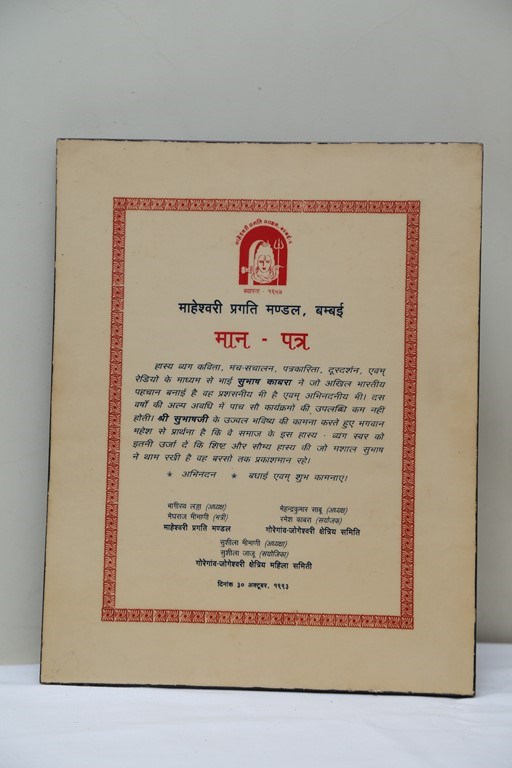 माहेश्वरी प्रगति मण्डल, बम्बई
स्थापना - १९५७
माहेश्वरी प्रगति मण्डल, बम्बई
मान - पत्र
हास्य व्यग कविता, मच-सचालन, पत्रकारिता, दूरदर्शन, एवम्
रेडियो के माध्यम से भाई सुभाष काबरा ने जो अखिल भारतीय
पहचान बनाई है वह प्रशसनीय भी है एवम् अभिनदनीय भी। दस
वर्षो की अल्प अवधि मे पाच सौ कार्यक्रमो की उपलब्धि कम नही
होती। श्री सुभाषजी के उज्वल भविष्य की कामना करते हुए भगवान
महेश से प्रार्थना है कि वे समाज के इस हास्य - व्यग स्वर को
इतनी उर्जा दे कि शिष्ट और सौम्य हास्य की जो मशाल सुभाष
ने थाम रखी है वह बरसो तक प्रकाशमान रहे।
* अभिनदन * बधाई एवम् शुभ कामनाए।
भागीरथ लढ्ढा (अध्यक्ष) महेन्द्रकुमार साबू (अध्यक्ष)
मेघराज मीमाणी (मत्री) रमेश काबरा (सयोजक)
माहेश्वरी प्रगति मण्डल गोरेगांव-जोगेश्वरी क्षेत्रिय समिति
सुशीला मीमाणी (अध्यक्षा)
सुशीला जाजू (सयोजिका)
गोरेगांव-जोगेश्वरी क्षेत्रिय महिला समिती
दिनांक ३० अक्टूबर, १९९३